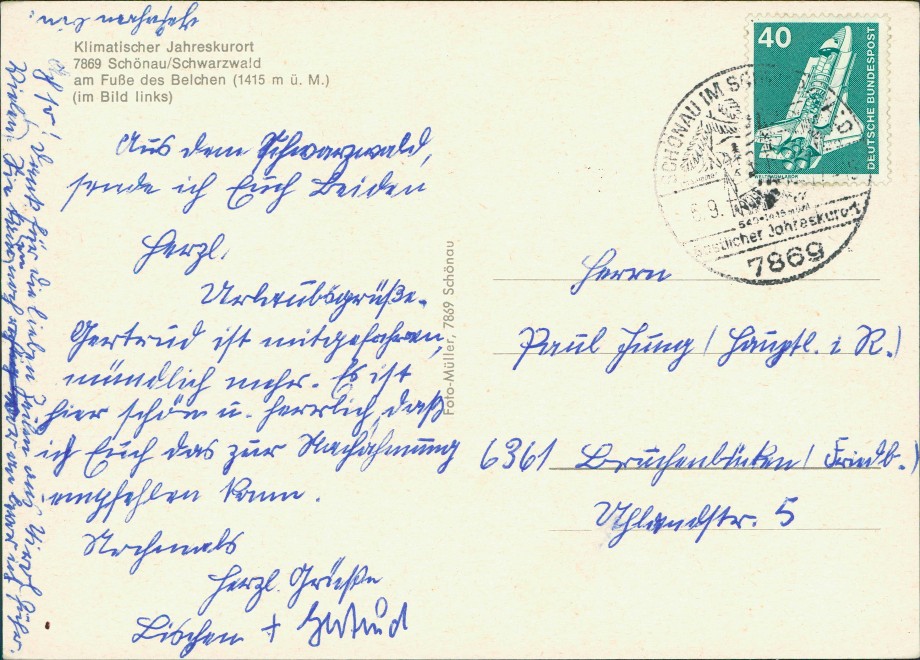 Klimatischer Jahreskurort
7869 Schönau/Schwarzwald
am Fuße des Belchen (1415 m ü. M.)
(im Bild links)
Aus dem Schwarzwald,
sende ich Euch Beiden
Herzl.
Urlaubsgrüße.
Gertrud ist mitgefahren,
mündlich mehr. Es ist
hier schön u. herrlich, daß
ich Euch das zur Nachahmung
empfehlen kann.
Nochmals
herzl. Grüße
Lischen + Gertrud
Dank für die lieben Zeilen aus
Foto-Müller, 7869 Schönau
40
DEUTSCHE BUNDESPOST
SCHÖNAU IM
6.9.
540-1415 m
Jahreskurort
7869
Herrn
Paul Jung (Hauptl. i R.)
6361 Bruchenbücken (Friedb.)
Uhlandstr. 5